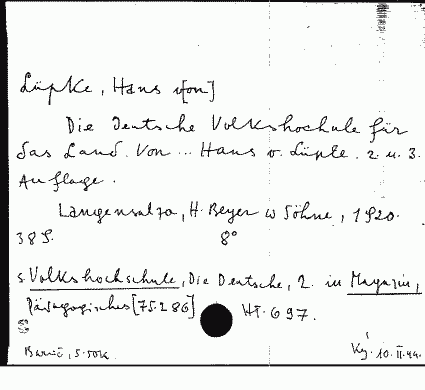 Lüpke, Hans v[on]
Die deutsche Volkshochule für
das Land. Von ... Hans v. Lüpke. 2 u. 3.
Auflage.
Langensalza, H. Beyer u Söhne, 1920.
38 S. 8°
s. Volkshochschule, Die Deutsche, 2. in Magazin,
Pädagogisches [75.286] HF. 697.
5.50K.
Kÿ. 10. II. 44.